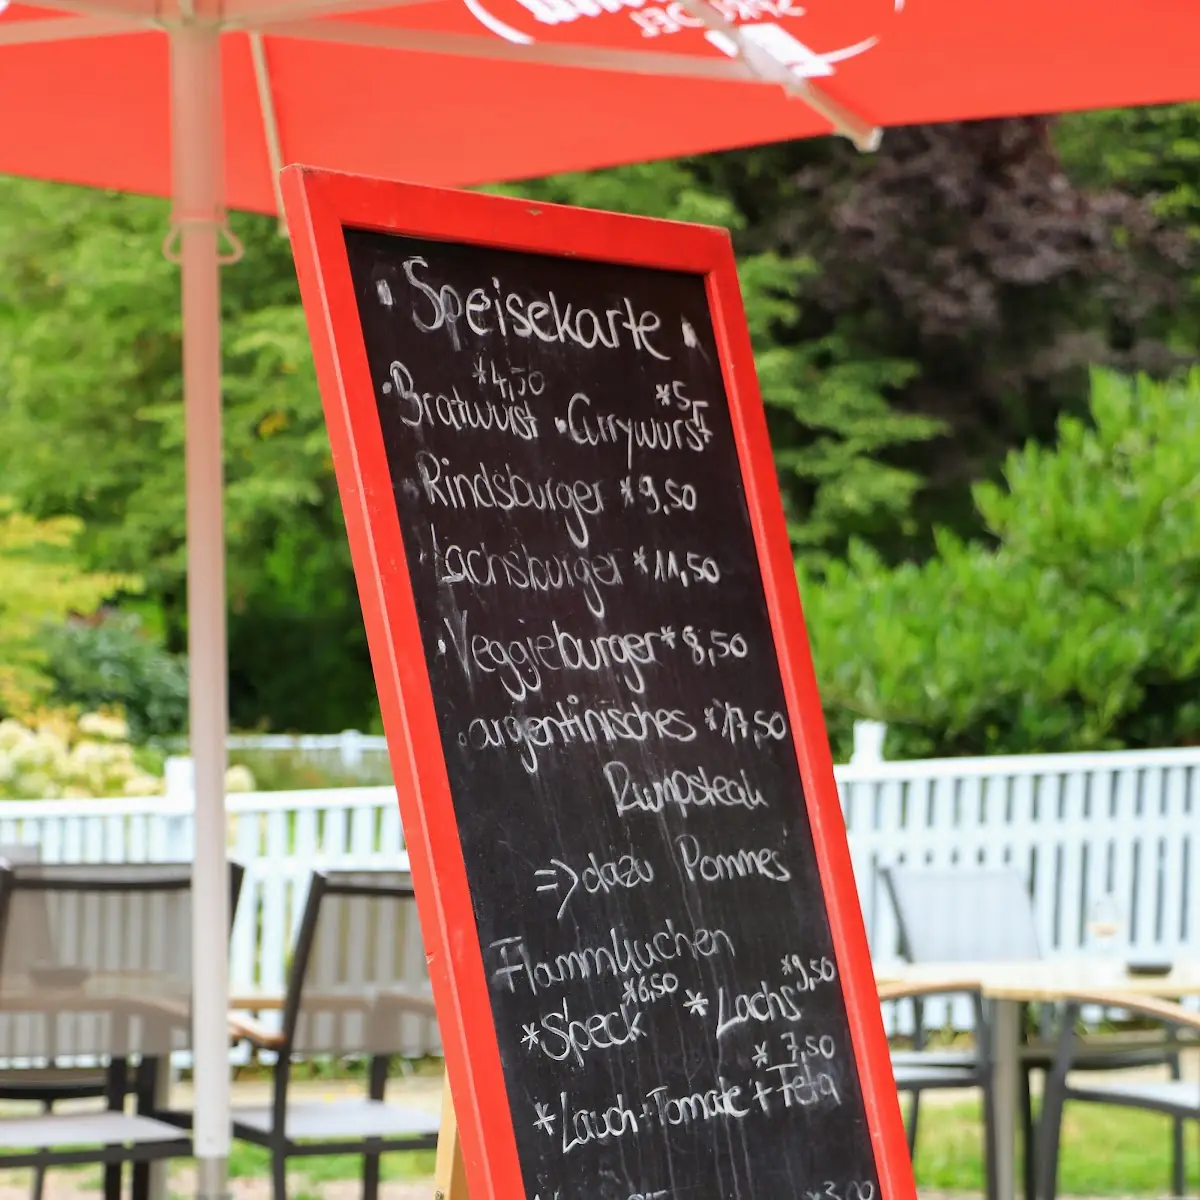 Speisekarte
*4,50 *5,-
• Bratwurst • Currywurst
• Rindsburger *9,50
• Lachsburger *11,50
• Veggieburger* 8,50
• argentinisches *17,50
Rumpsteak
=> dazu Pommes
Flammkuchen
*6,50 *9,50
*Speck * Lachs
* 7,50
*Lauch+Tomate + Feta
*3,00